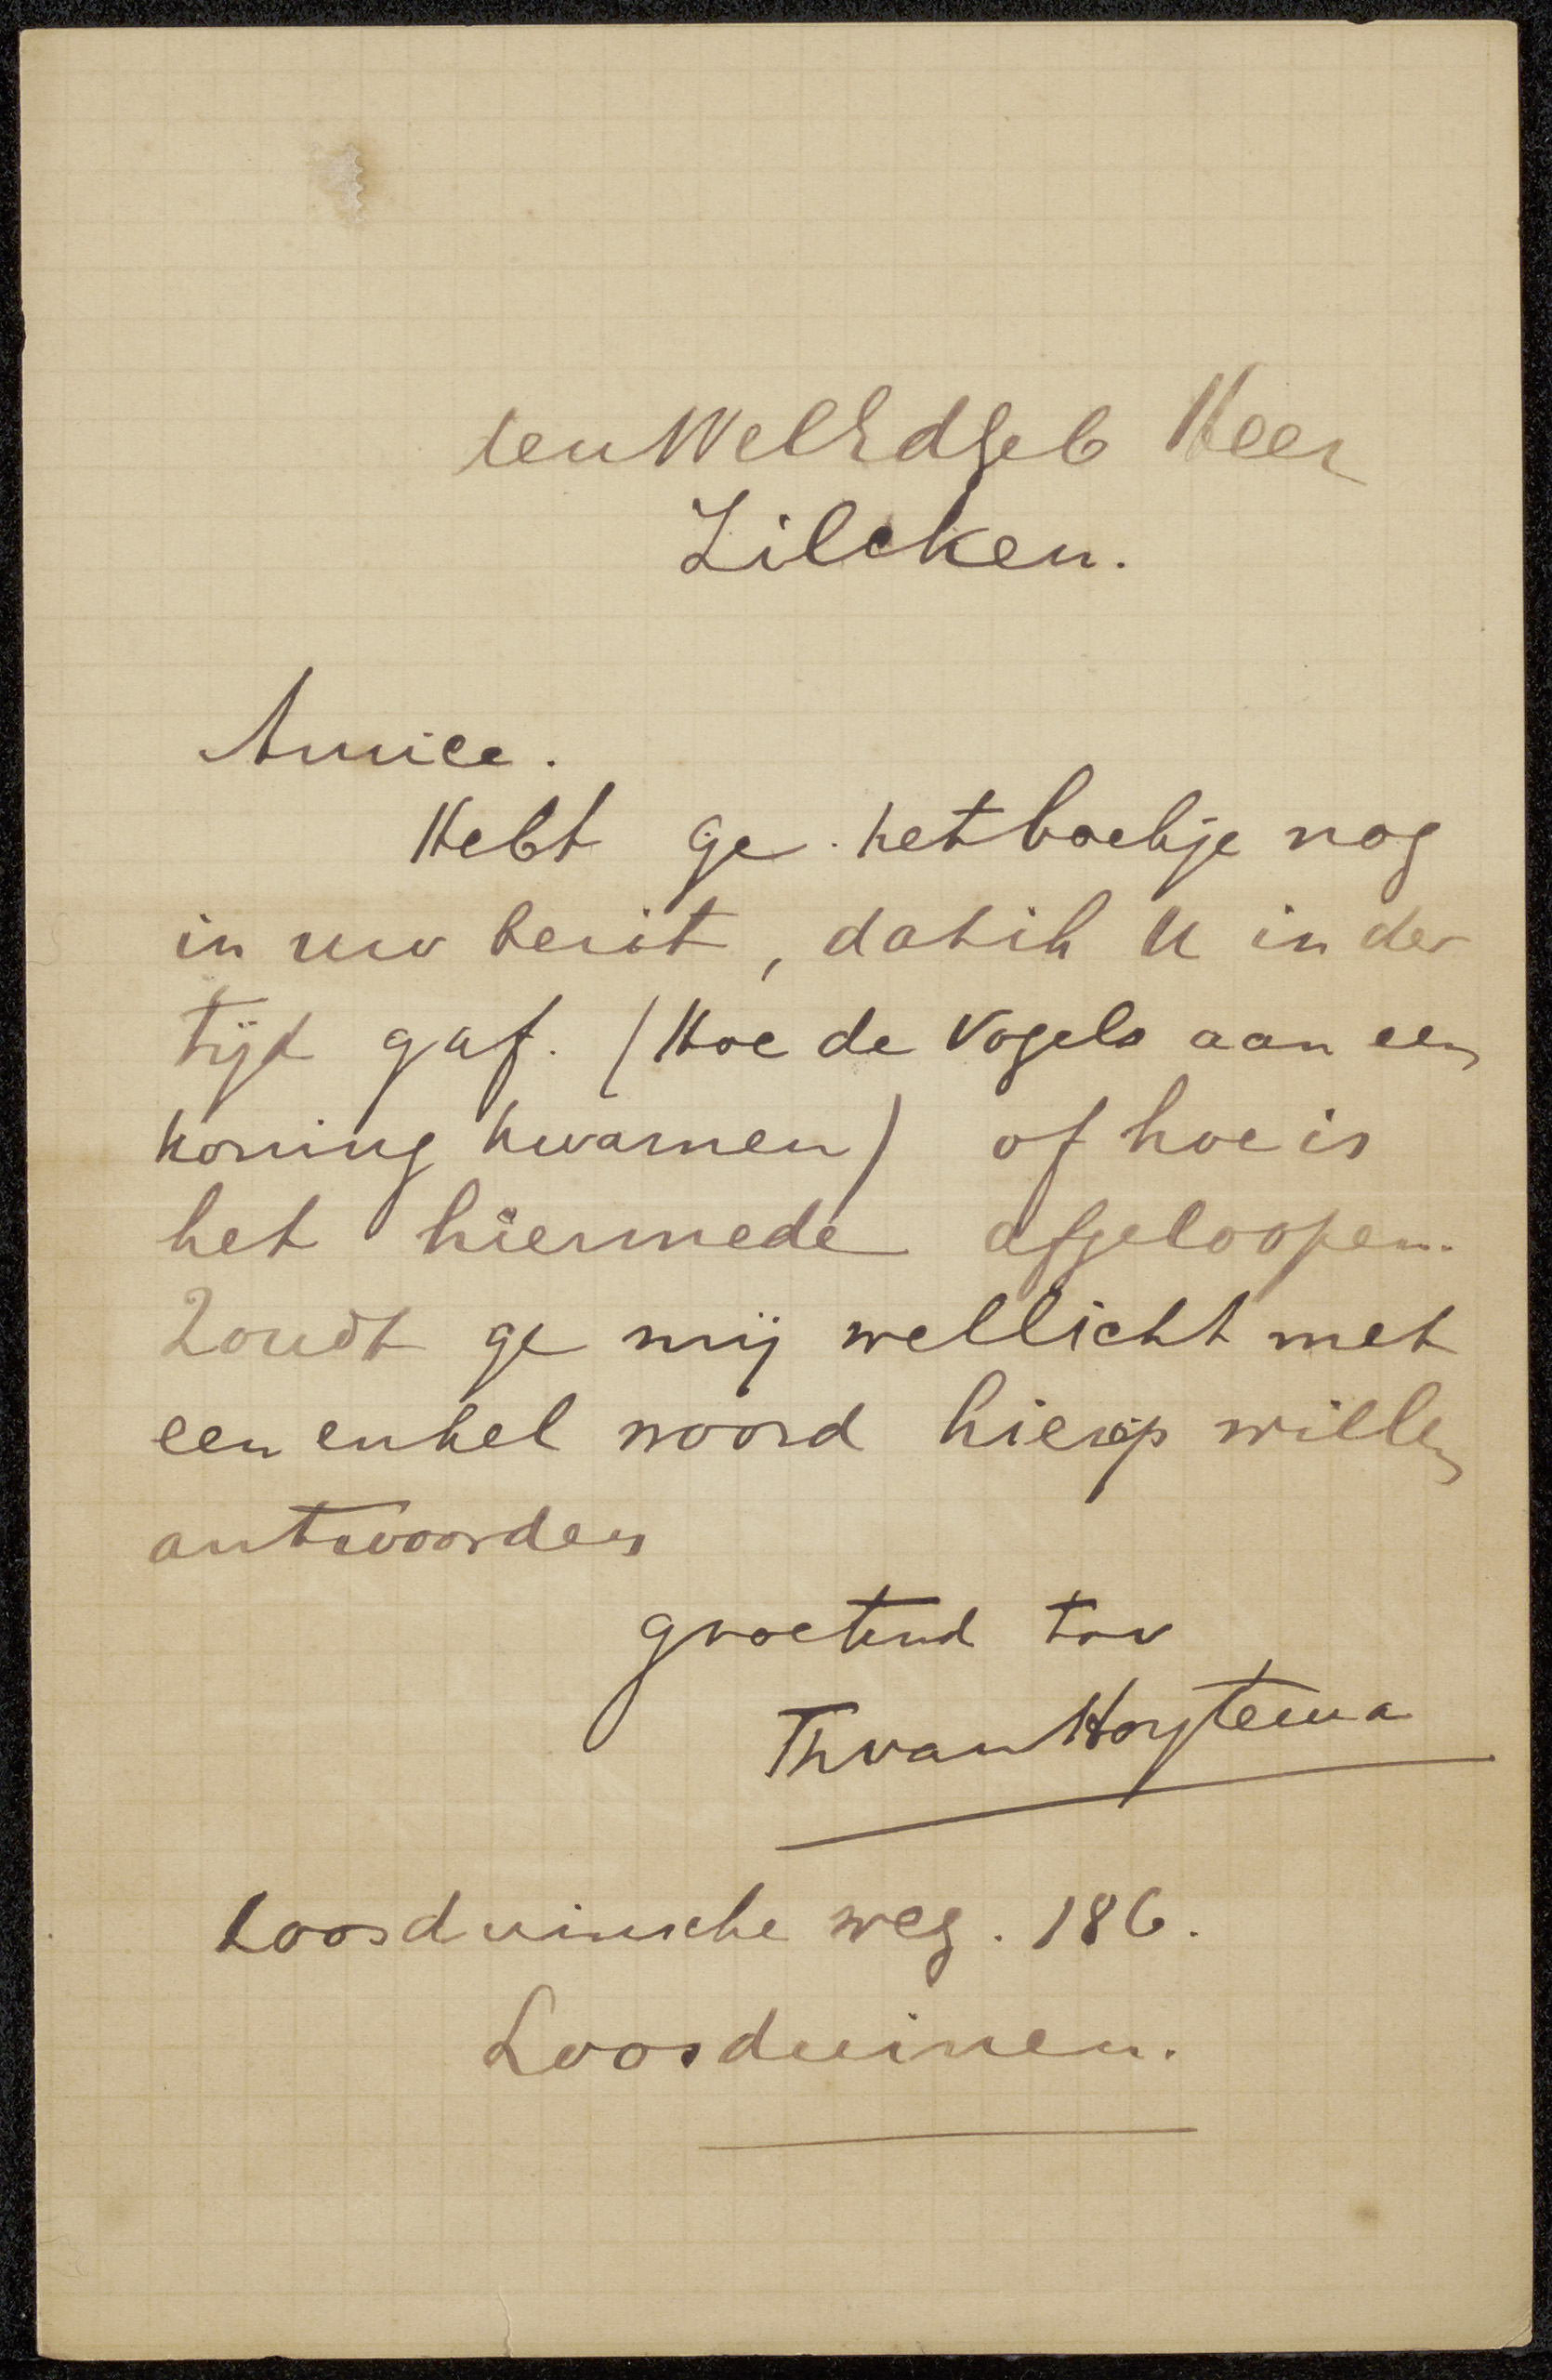 den WelEdgeb Heer
Zilcken.
Amice.
Hebt ge het boekje nog
in uw bezit, dat ik U in der
tijd gaf. (Hoe de Vogels aan een
koning kwamen) of hoe is
het hiermede afgeloopen.
Zoudt ge mij wellicht met
een enkel woord hierop willen
antwoorden
groetend tav
Th van Hoytema
Loosduinsche weg. 186.
Loosduinen.